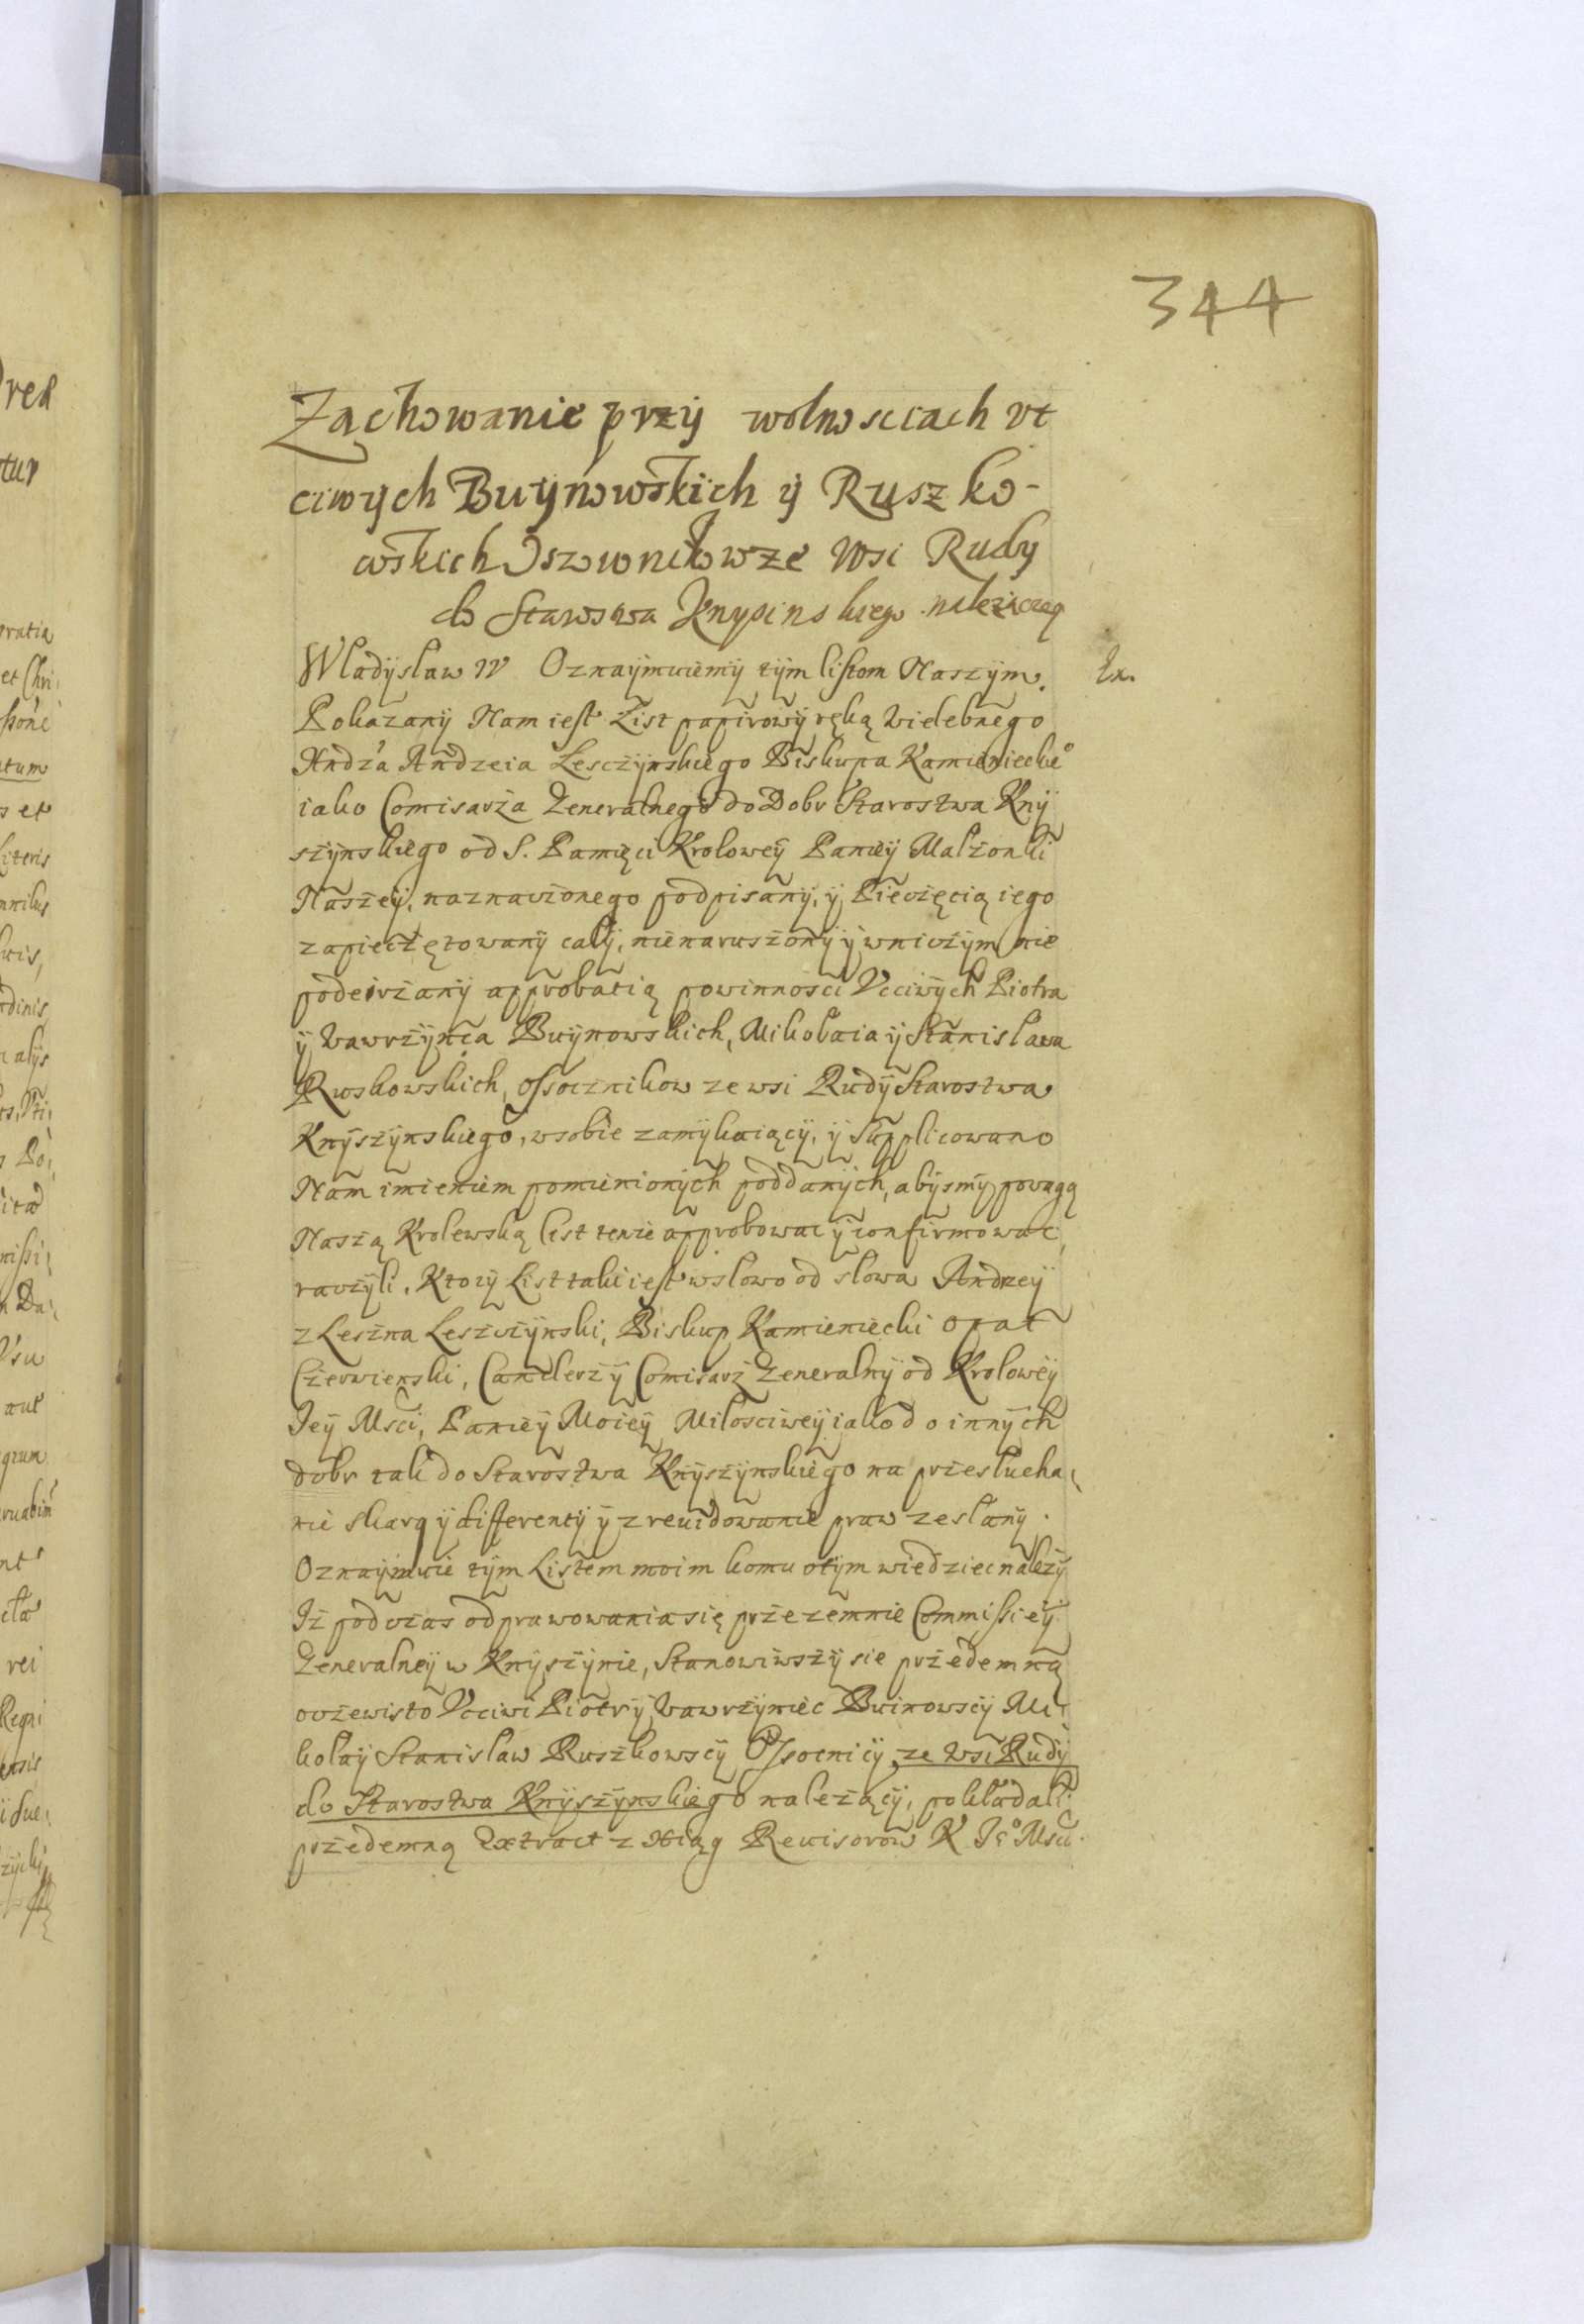 344
Zachowanie przÿ wolnosciach vt
ciwych Buÿnowskich ÿ Ruszko-
wskich Oszownikow ze Wsi Rudy
do Starostwa Knysinskiego należączeg
Wladÿslaw IV Oznaÿmuiemÿ tÿm listom Naszÿm.
Ex.
Pokazanÿ Nam iest List papirowÿ ręką Wielebnego
Andza Andrzeia Lesczÿnskiego Biskupa Kamienieckie°
iako Comisarza Generalnego do Dobr Starostwa Knÿ
szÿnskiego od S. Pamięci Krolowey Paniey Malżonki
Naszeÿ, naznaczonego podpisanÿ, ÿ Pieczęcią iego
zapieczętowanÿ calÿ, nienaruszonÿ ÿ wniczÿm nie
podeirzanÿ approbatią powinnosci Vcciwÿch Piotra
ÿ Wawrzÿnca Buÿnowskich, Mikolaia ÿ Stanislawa
Ruskowskich, ossocznikow ze wsi Rudÿ Starostwa
Knÿszÿnskiego, wsobie zamÿkaiącÿ, ÿ supplicowano
Nam imieniem pomienionÿch poddanÿch, abÿsmÿ powagą
Naszą Krolewską list tenże approbowac ÿ confirmowac
raczÿli. Ktorÿ List taki iest wslowo od slowa Andrzeÿ
z Leszna Leszczÿnski, Biskup Kamieniecki Opat
Czerwienski, Canclerz ÿ Comisarz Generalnÿ od Kroloweÿ
Jeÿ Msci, Panieÿ Moieÿ Milosciweÿ iako do innÿch
dobr tak do Starostwa Knÿszÿnskiego na przeslucha,
nie skarg ÿ differentÿ ÿ zreuidowanie praw zeslanÿ.
Oznaÿmuie tÿm Listem moim komu otÿm wiedziec należÿ
Jż podczas odprawowania się przezemnie Commissieÿ
Generalneÿ w Knÿszÿnie, Stanowiwszÿ sie przedemną
oczewisto Vcciwi Piotr ÿ Wawrzÿniec Buinowscÿ Mi
kolaÿ Stanislaw Ruszkowscÿ Ossocnicÿ ze Wsi Rudÿ
do Starostwa Knÿszÿnskiego należącÿ, pokladali
przedemną Extract z Xiąg Reuisorow K Je° Msci.